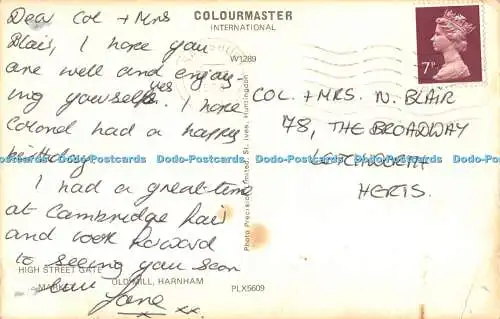 COLOURMASTER
INTERNATIONAL
W1289
Dear Col + Mrs
Blair, I hope you
are well and enjoy-
ing yourselfves. I hope
Colonel had a happy
birthday
I had a great time
at Cambridge
and look forward
to seeing you soon
love Jane xx.
7P
COL. + MRS. N. BLAIR
78, THE BROADWAY
LETCHWORTH
HERTS.
Photo Precision Limited, St. Ives, Huntingdon
HIGH STREET GATE
OLD MILL, HARNHAM
PLX5609
Dodo-Postcards Dodo-Postcards Dodo-Postcards Dodo-Postcards Dodo-Postcards